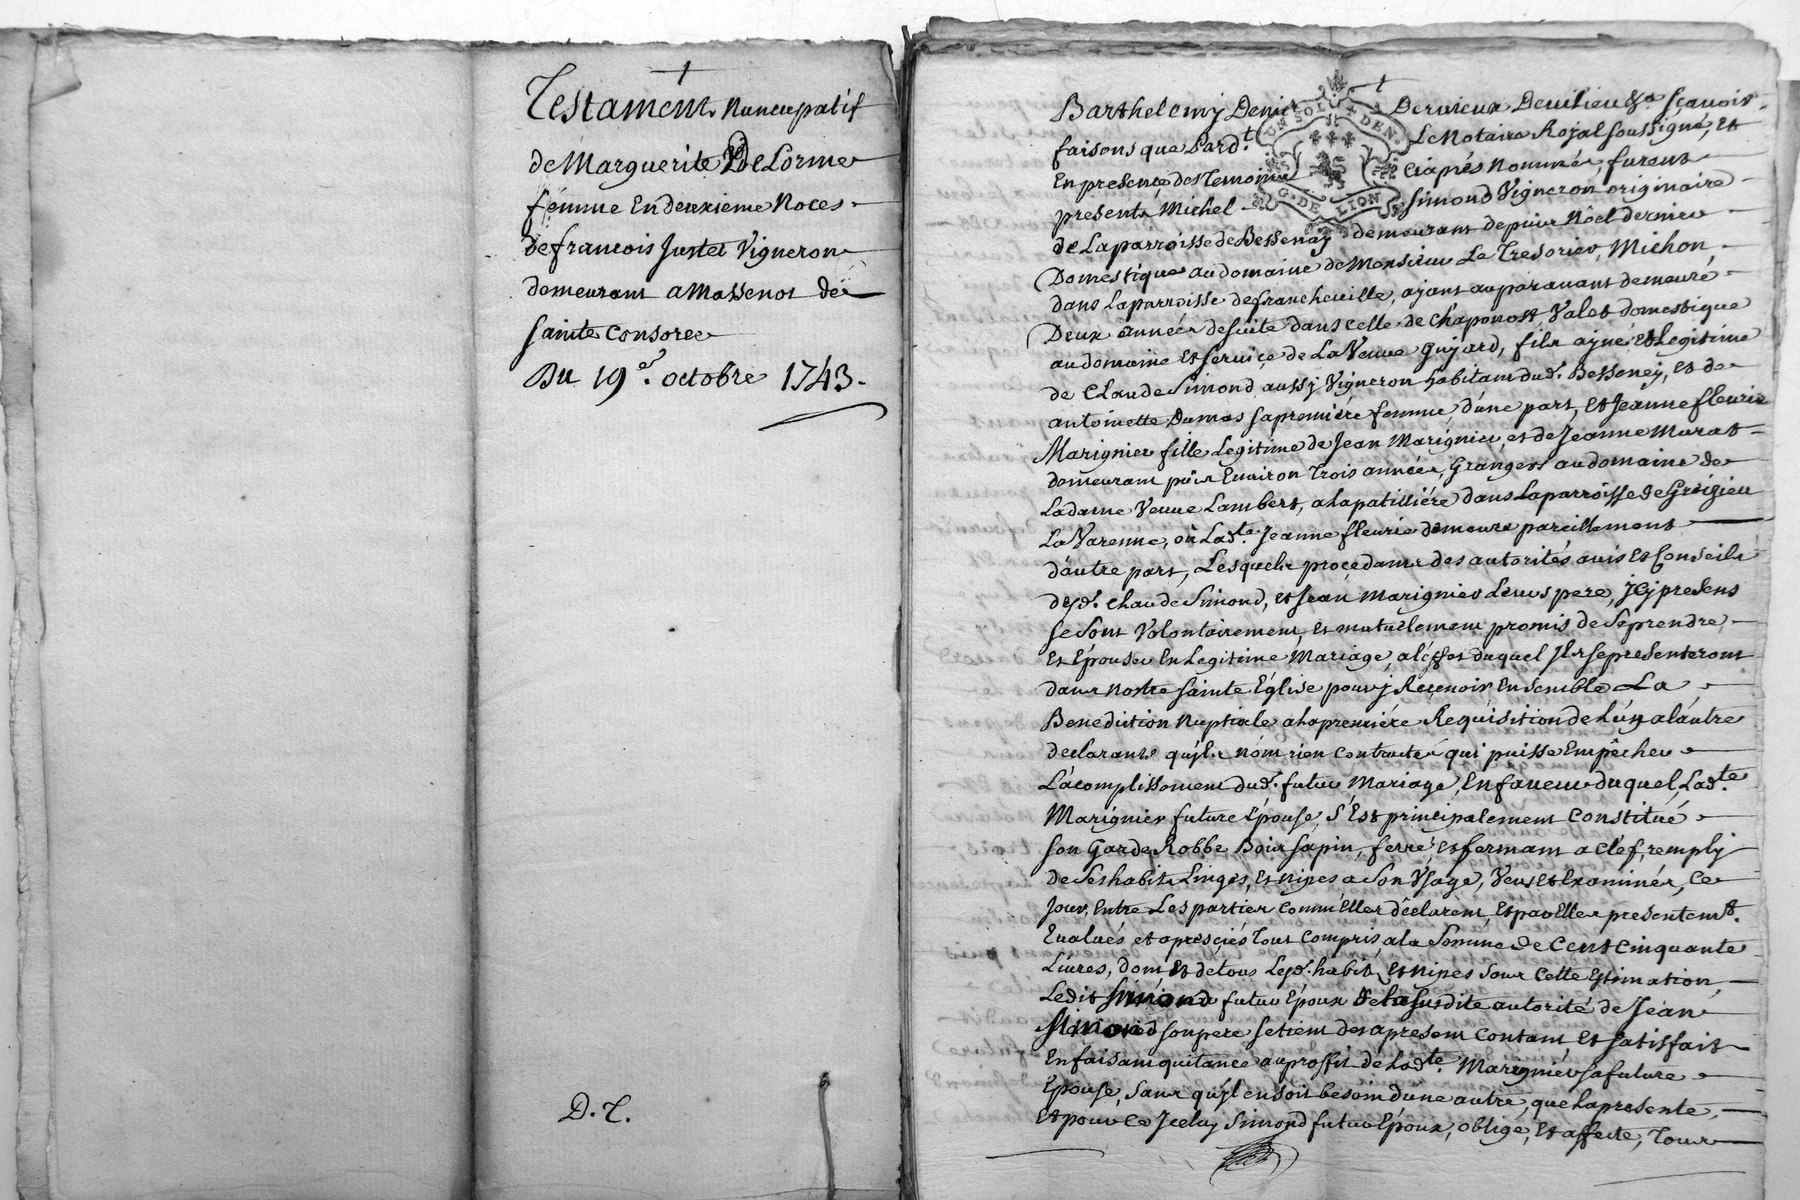 Testament Nuncupatif
de Marguerite DeLorme
femme En deuxieme Noces
de francois Justet Vigneron
demeurant a Massenot de
sainte Consorce
Du 19e. octobre 1743.
D. T.
Barthelemy Denis Dervieux Devilieu &a scavoir
faisons que Pard.t Le Notaire Royal soussigné, et
En presence des Temoins ciaprés Nommés, furent
UN SOL 4 DEN.
G. DE LION
presents Michel Simond Vigneron originaire
de Laparroisse de Bessenay demeurant depuis Nôel dernier
Domestique au domaine de Monsieur Le Tresorier Michon
dans Laparroisse defrancheville, ayant auparavant demeuré
Deux années desuite dans celle de Chaponost Valet domestique
audomaine et service de La Veuve Guyard, fils ayné et Legitime
de Claude Simond aussy Vigneron habitant dud. Bessenay, et de
antoinette Dumas sapremiére femme d'une part, et Jeanne fleurie
Marignier fille Legitime de Jean Marignier, et de Jeanne Murat
demeurant puis Environ Trois années, Granger audomaine de
Ladame Veuve Lambert, alapatilliére dans Laparroisse de Greizieu
La Varenne, où Lad.te Jeanne fleurie demeure pareillement
d'autre part, Lesquels procedants des autorités avis et Conseils
desd. Claude Simond, et Jean Marignier Leurs pere, Jcy presens
se sont Volontairement, et mutuelement promis de Seprendre
Et Epouser En Legitime Mariage, aléffet duquel Jls sepresenteront
dans Nostre sainte Eglise poury Recevoir Ensemble La
Benediction Nuptiale alapremiére Requisition de L'un a l'autre
declarants qu'jls n'ont rien contracté qui puisse Empêcher
L'acomplissement dud. futur Mariage, En faveur duquel, Lad.te
Marignier future Epouse, s'Est principalement Constitué
son Garde Robbe Bois sapin, ferré, et fermant a Clef, remply
de Ses habits Linges, et nipes a Son Usage, Veus et Examinés, Ce
Jour, Entre Les parties comm'Elles déclarent, et par Elles presentem.t
Evalués et apreciés Tout compris ala Somme de Cent Cinquante
Livres, dont et de tous Lesd. habits, et nipes sous Cette Estimation
Ledit Simond futur Epoux de la susdite autorité de Jean
Simond son pere se tient des apresent Contant, et Satisfait
En faisant quitance auproffit de Lad.te Marignier safuture
Epouse, sans qu'jl en soit besoin d'une autre, que Lapresente,
Et pour Ce Jceluy Simond futur Epoux, oblige, Et affecte, Tous